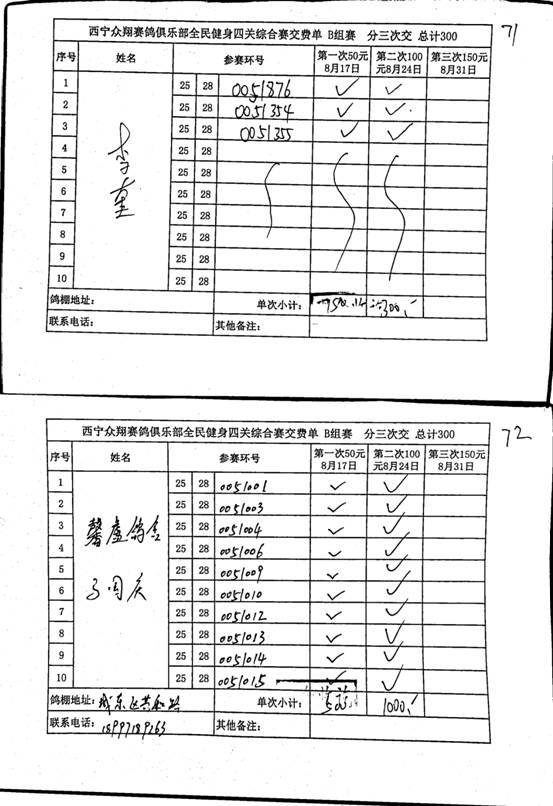 71
西宁众翔赛鸽俱乐部全民健身四关综合赛交费单 B组赛 分三次交 总计300
序号 姓名 参赛环号 第一次50元 第二次100 第三次150元
8月17日 元8月24日 8月31日
1 25 28 0051876 ✓ ✓
2 25 28 0051354 ✓ ✓
3 25 28 0051355 ✓ ✓
4 25 28
李
5 25 28
6 25 28
7 25 28
8 25 28
9 25 28
10 25 28
鸽棚地址： 单次小计： 300
联系电话： 其他备注：
72
西宁众翔赛鸽俱乐部全民健身四关综合赛交费单 B组赛 分三次交 总计300
序号 姓名 参赛环号 第一次50元 第二次100 第三次150元
8月17日 元8月24日 8月31日
1 25 28 0051001 ✓ ✓
2 25 28 0051003 ✓ ✓
3 馨庐鸽舍 25 28 0051004 ✓ ✓
4 25 28 0051006 ✓ ✓
5 25 28 0051009 ✓ ✓
6 25 28 0051010 ✓ ✓
7 25 28 0051012 ✓ ✓
8 25 28 0051013 ✓ ✓
9 25 28 0051014 ✓ ✓
10 25 28 0051015 ✓ ✓
鸽棚地址：城东区共和路 单次小计： 1000
联系电话：18997189263 其他备注：